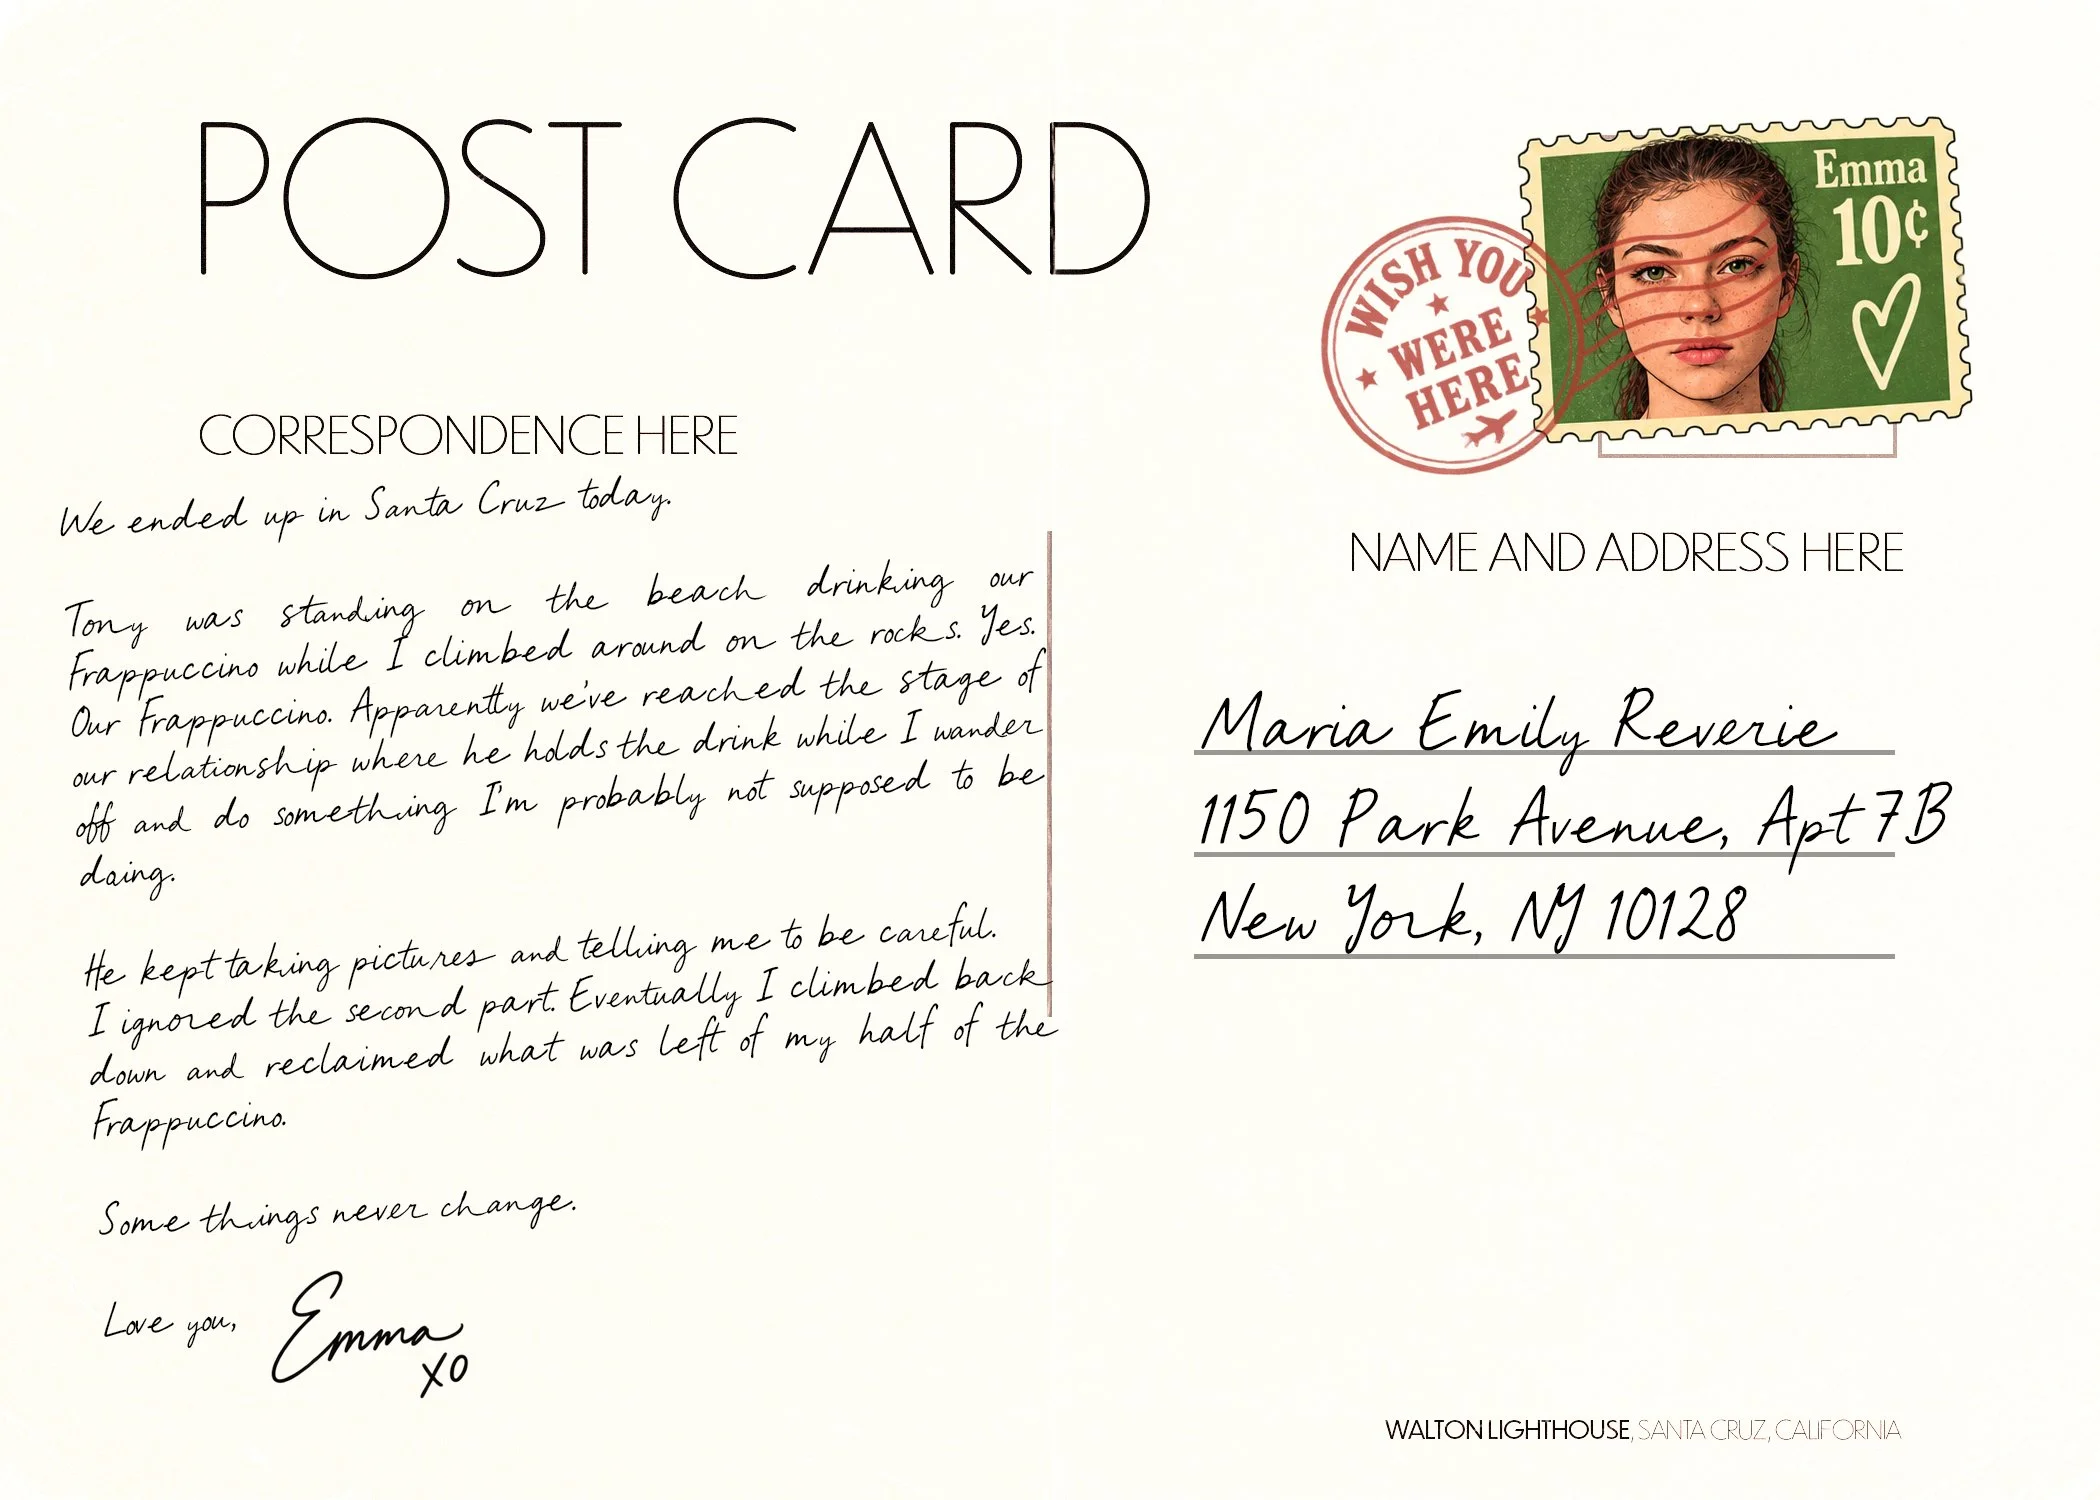 POST CARD
CORRESPONDENCE HERE
We ended up in Santa Cruz today.
Tony was standing on the beach drinking our
Frappuccino while I climbed around on the rocks. Yes.
Our Frappuccino. Apparently we've reached the stage of
our relationship where he holds the drink while I wander
off and do something I'm probably not supposed to be
doing.
He kept taking pictures and telling me to be careful.
I ignored the second part. Eventually I climbed back
down and reclaimed what was left of my half of the
Frappuccino.
Some things never change.
Love you,
Emma
XO
WISH YOU
WERE
HERE
Emma
10¢
NAME AND ADDRESS HERE
Maria Emily Reverie
1150 Park Avenue, Apt 7B
New York, NY 10128
WALTON LIGHTHOUSE, SANTA CRUZ, CALIFORNIA